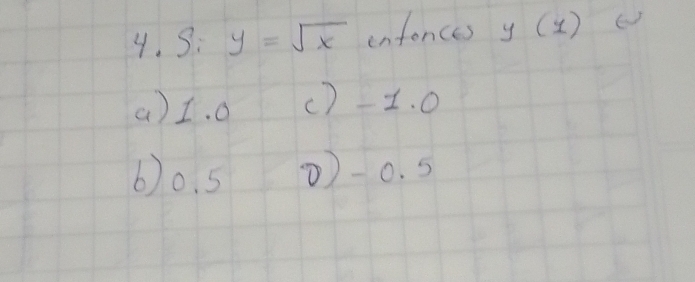 4. Si y = √x entonces y (1)
a) 1.0 c) -1.0
b) 0.5 D) -0.5